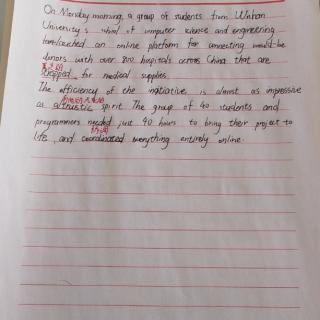 On Monday morning, a group of students from Wuhan
University's school of computer science and engineering
launched an online platform for connecting would-be
donors with over 800 hospitals across China that are
strapped for medical supplies.
The efficiency of the initiative is almost as impressive
as altruistic spirit. The group of 40 students and
programmers needed just 90 hours to bring their project to
协调
life, and coordinated everything entirely online.